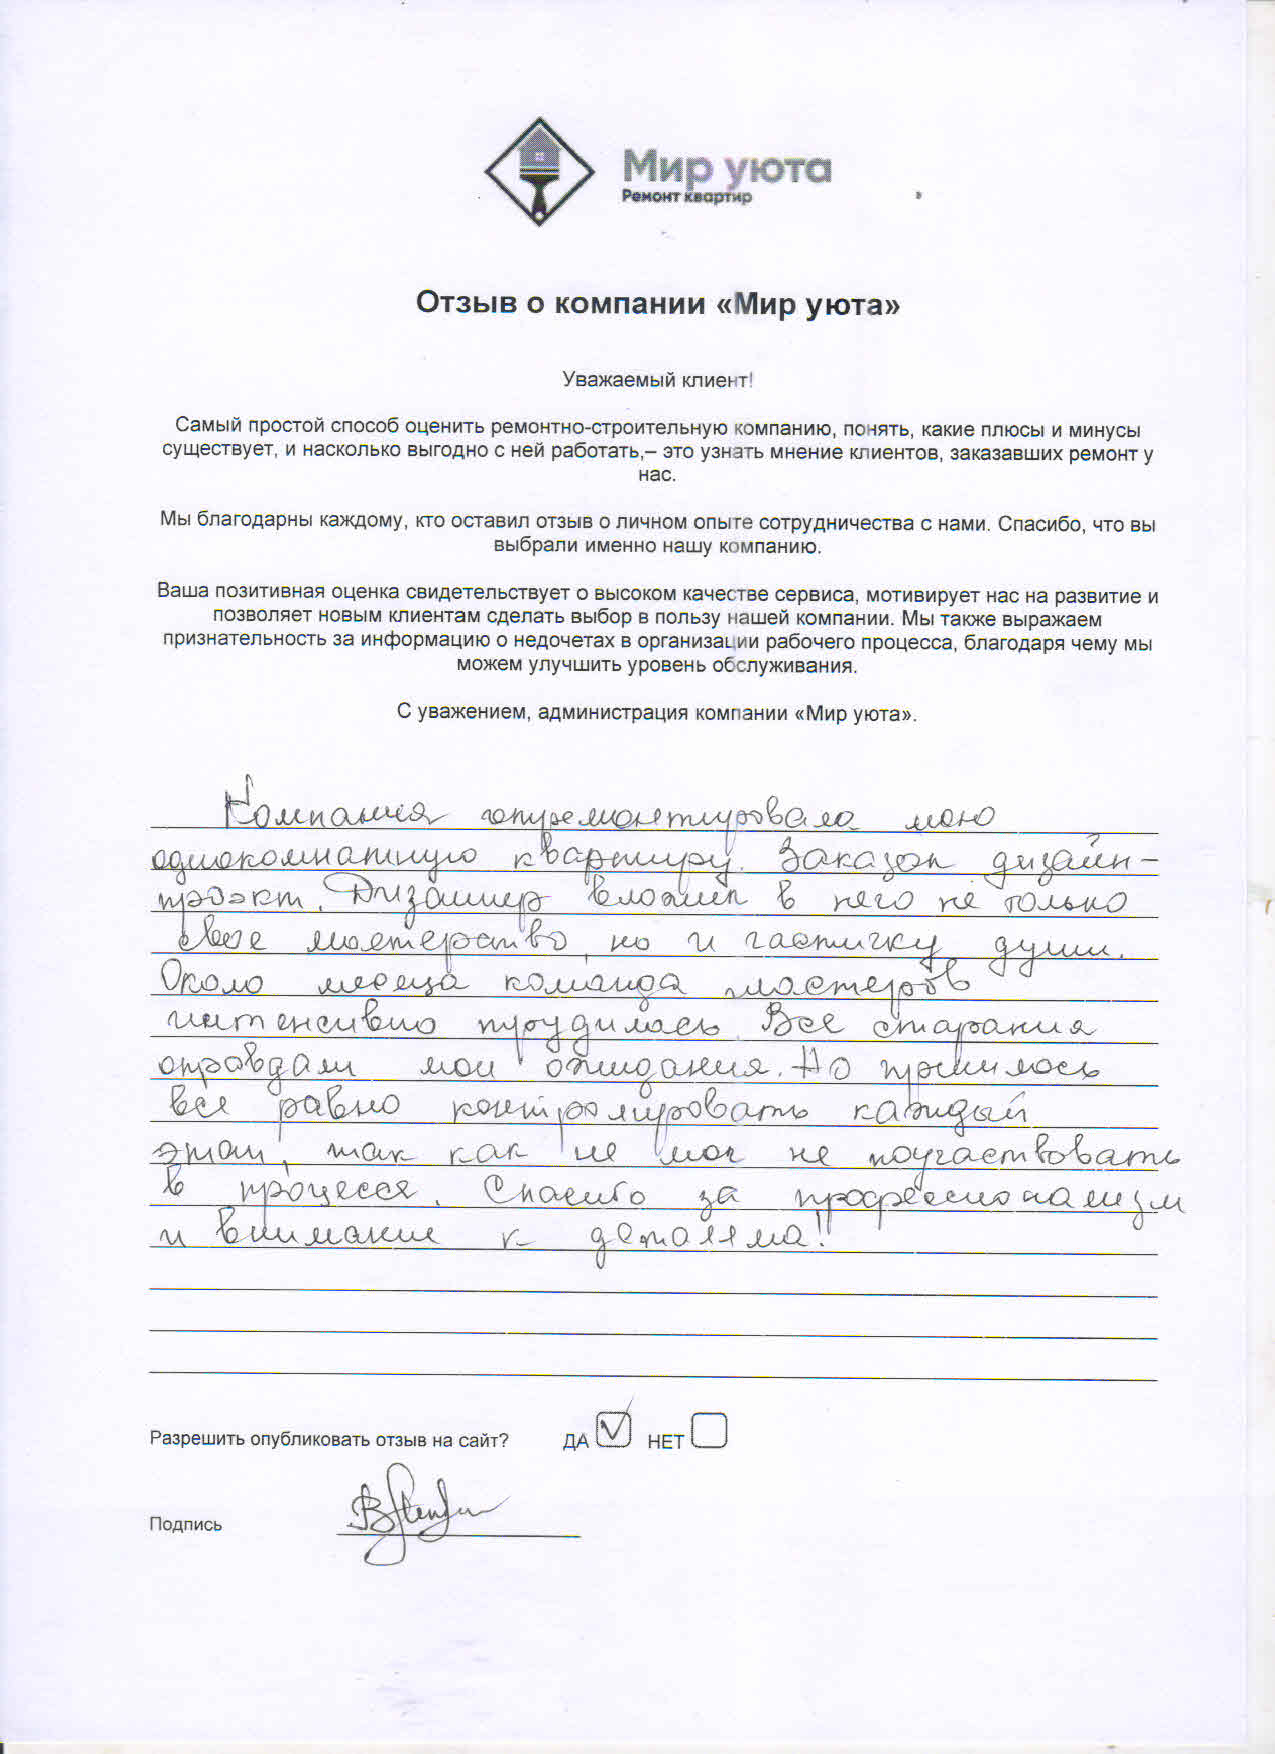 Мир уюта
Ремонт квартир
Отзыв о компании «Мир уюта»
Уважаемый клиент!
Самый простой способ оценить ремонтно-строительную компанию, понять, какие плюсы и минусы
существует, и насколько выгодно с ней работать,– это узнать мнение клиентов, заказавших ремонт у
нас.
Мы благодарны каждому, кто оставил отзыв о личном опыте сотрудничества с нами. Спасибо, что вы
выбрали именно нашу компанию.
Ваша позитивная оценка свидетельствует о высоком качестве сервиса, мотивирует нас на развитие и
позволяет новым клиентам сделать выбор в пользу нашей компании. Мы также выражаем
признательность за информацию о недочетах в организации рабочего процесса, благодаря чему мы
можем улучшить уровень обслуживания.
С уважением, администрация компании «Мир уюта».
Компания отремонтировала мою
однокомнатную квартиру. Заказал дизайн-
проэкт. Дизайнер вложил в него не только
свое мастерство, но и частичку души.
Около месяца команда мастеров
интенсивно трудилась. Все старания
оправдали мои ожидания. Но пришлось
все равно контролировать каждый
этап, так как не мог не поучаствовать
в процессе. Спасибо за профессионализм
и внимание к деталям!
Разрешить опубликовать отзыв на сайт? ДА НЕТ
Подпись